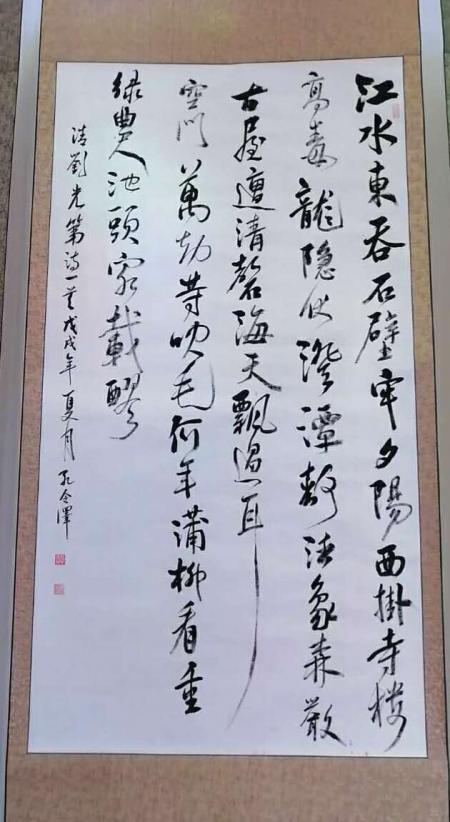 江水東吞石壁牢夕陽西掛寺樓
高毒龍隱伏澄潭静法象森嚴
古屋邅清磬海天飄過耳
空門萬劫等吹毛何年蒲柳看重
绿農人池頭家載醪
清劉光第詩一首戊戌年夏月孔令澤